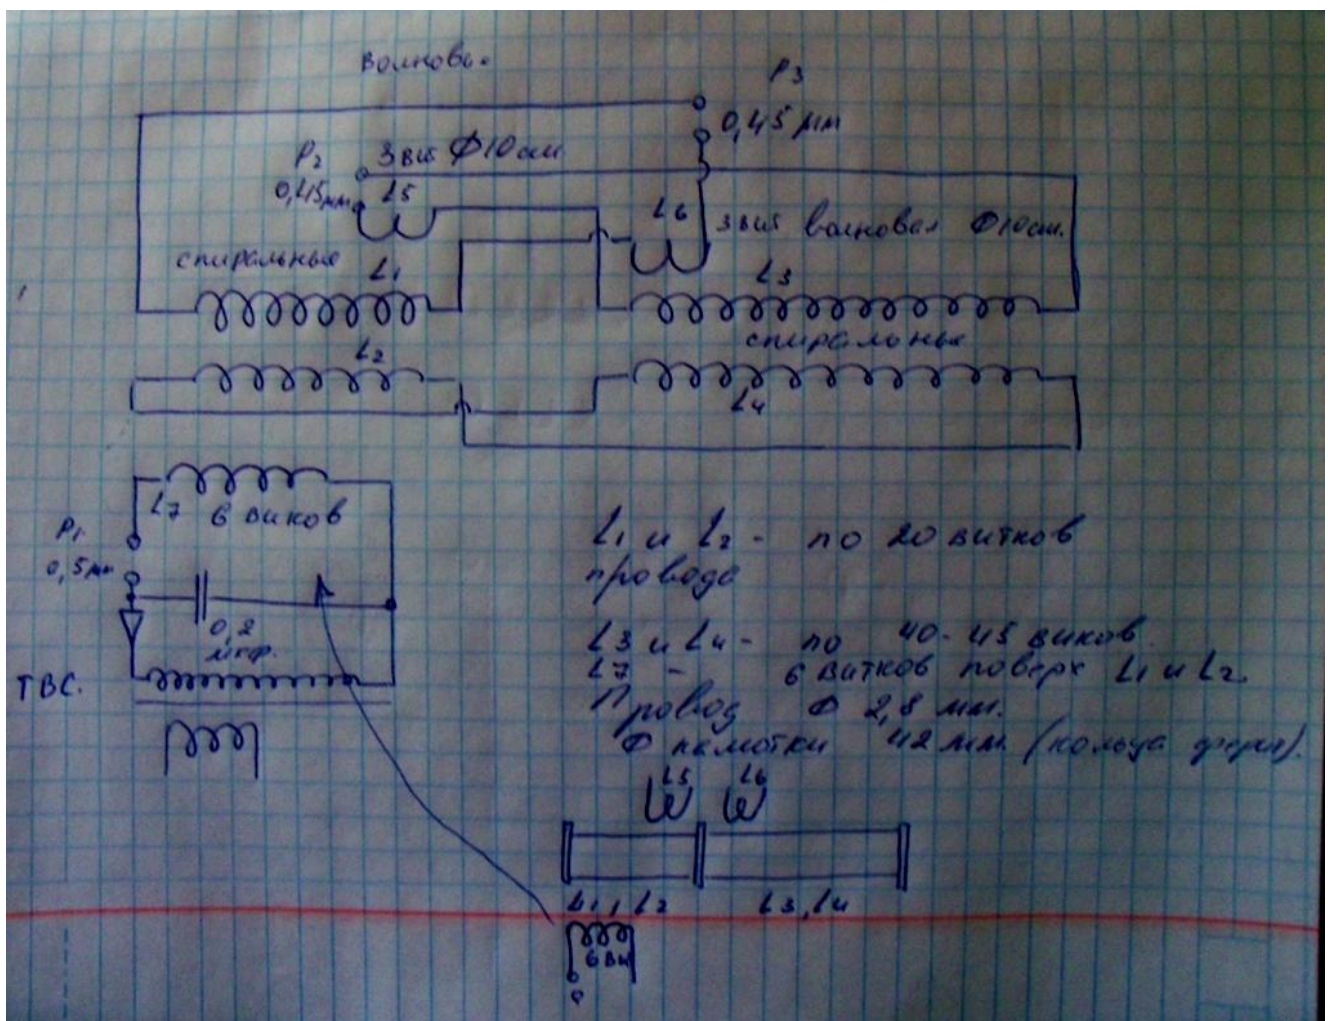 волновая
P3
0,45 мм
P2
3 вит Ф10см.
0,45 мм
L5
L6
3 вит волновая Ф10см.
спиральные
L1
L3
спиральные
L2
L4
L7
6 виков
P1
0,5 мм
0,2
мкф.
ТВС.
L1 и L2 - по 20 витков
провода
L3 и L4 - по 40-45 виков.
L7 - 6 витков поверх L1 и L2.
Провод Ф 2,8 мм.
Ф намотки 42 мм. (кольца
L5 L6
L1, L2 L3, L4
6 ви